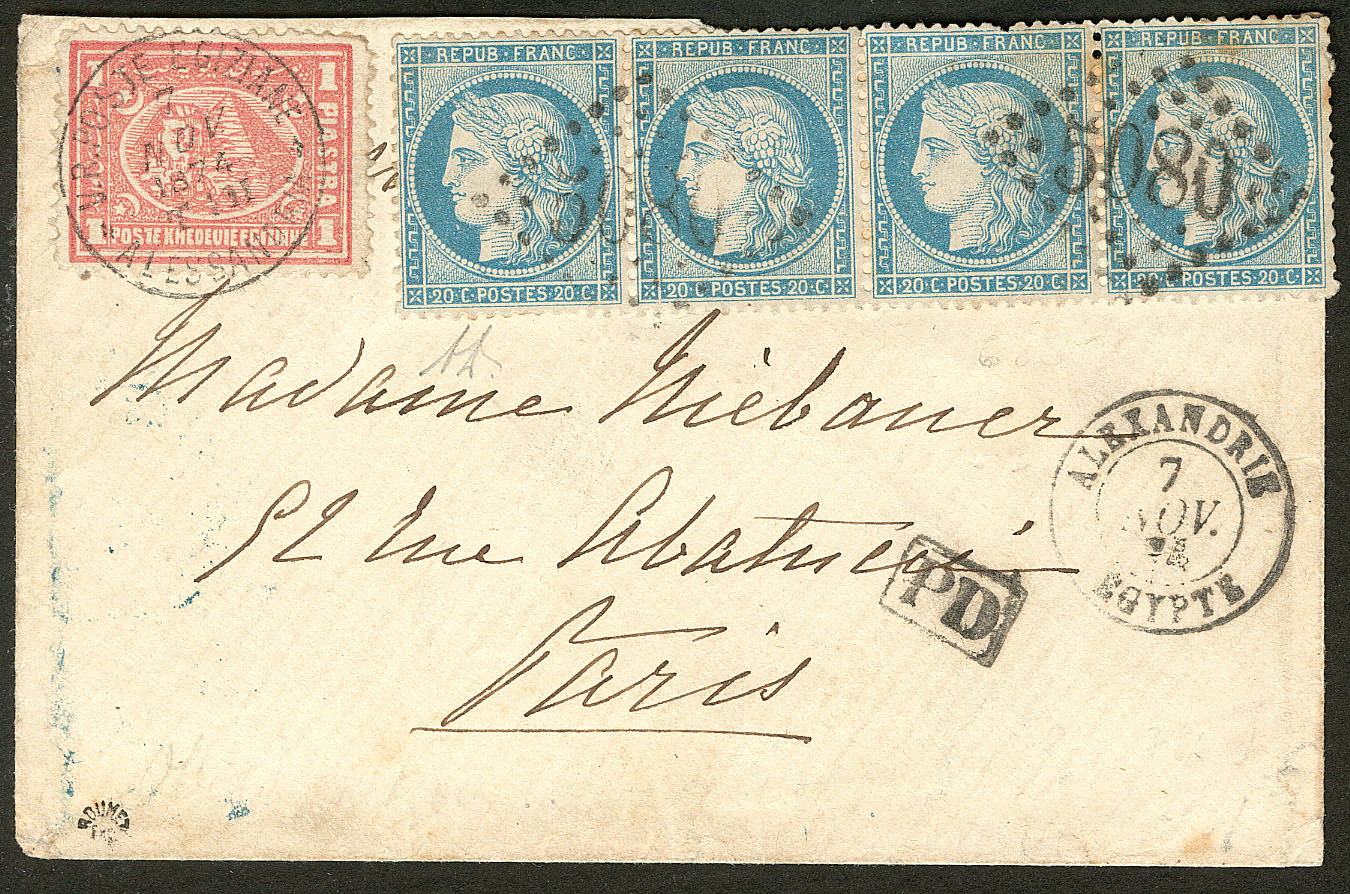 V.R. POSTE EGIZIANE
7
NOV
1874
ALESSANDRIA
1 PIASTRA 1
1 POSTE KHEDEUIE EGIZIANE 1
REPUB·FRANC REPUB·FRANC REPUB·FRANC REPUB·FRANC
5080 5080
20·C·POSTES·20·C· 20·C·POSTES·20·C· 20·C·POSTES·20·C· 20·C·POSTES·20·C·
Madame Niébauer
52 rue Abatucci
Paris
ALEXANDRIE
7
NOV.
74
EGYPTE
PD
ROUMET